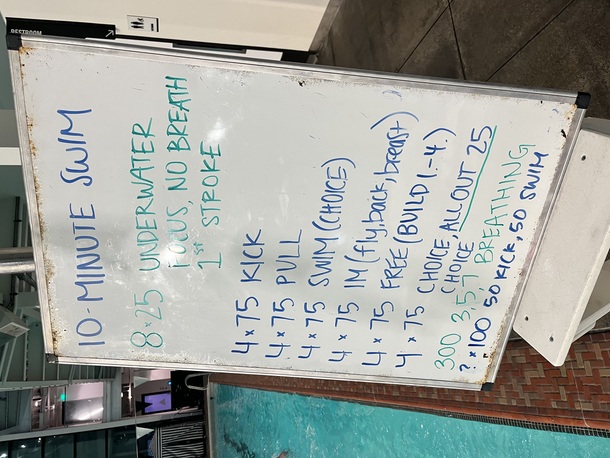 RESTROOM
10-MINUTE SWIM
8×25 UNDERWATER
FOCUS, NO BREATH
1st STROKE
4×75 KICK
4×75 PULL
4×75 SWIM (CHOICE)
4×75 IM (fly, back, breast)
4×75 FREE (BUILD 1.-4.)
4×75 CHOICE,
CHOICE, ALL OUT 25
300 3,5,7 BREATHING
?×100 50 KICK, 50 SWIM